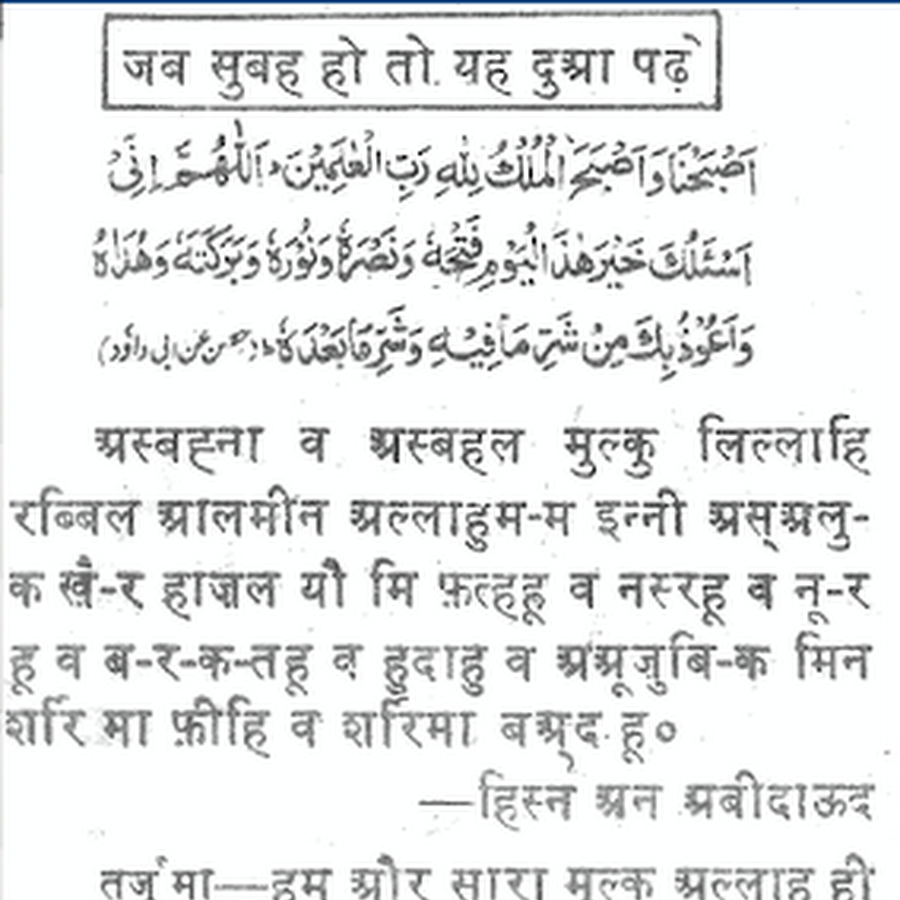 जब सुबह हो तो यह दुआ पढ़े
اَصْبَحْنَا وَاَصْبَحَ الْمُلْكُ لِلّٰهِ رَبِّ الْعٰلَمِیْنَ، اَللّٰهُمَّ اِنِّیْ
اَسْئَلُكَ خَیْرَ هٰذَا الْیَوْمِ فَتْحَهٗ وَنَصْرَهٗ وَنُوْرَهٗ وَبَرَكَتَهٗ وَهُدَاهُ
وَاَعُوْذُ بِكَ مِنْ شَرِّ مَا فِیْهِ وَشَرِّ مَا بَعْدَهٗ (حصن عن ابی داؤد)
अस्बह्ना व अस्बहल मुल्कु लिल्लाहि
रब्बिल आलमीन अल्लाहुम-म इन्नी अस्अलु-
क ख़ै-र हाज़ल यौ मि फ़त्हहू व नस्रहू व नू-र
हू व ब-र-क-तहू व हुदाहु व अअूज़ुबि-क मिन
शर्रि मा फ़ीहि व शर्रिमा बअ्द हू०
—हिस्न अन अबीदाऊद
तर्जुमा—हम और सारा मुल्क अल्लाह ही